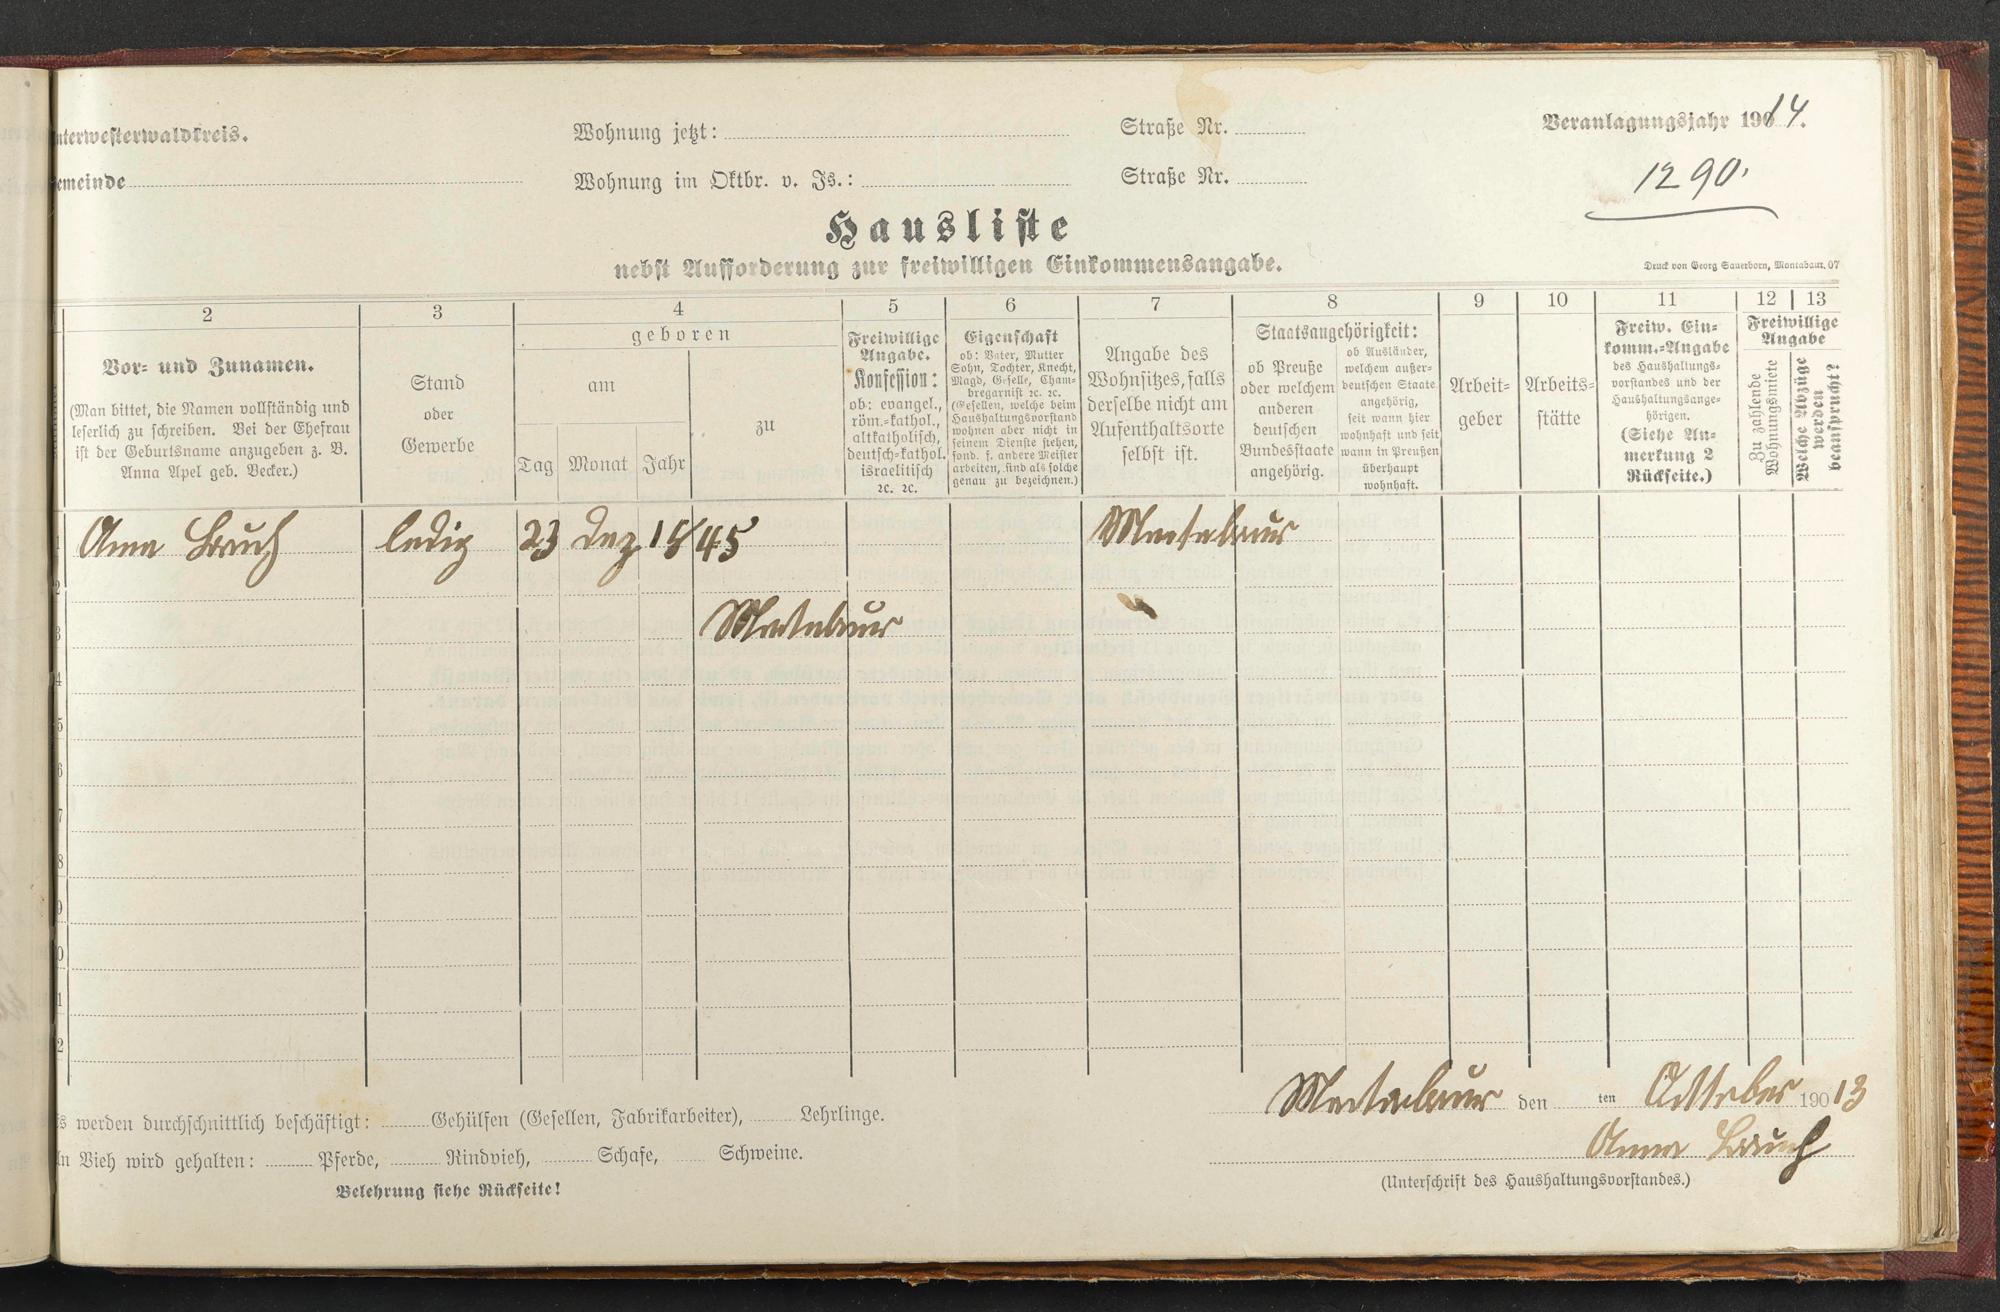 nterwesterwaldkreis.
Wohnung jetzt:
Straße Nr.
Veranlagungsjahr 1914.
emeinde
Wohnung im Oktbr. v. Js.:
Straße Nr.
1290.
Hausliste
nebst Aufforderung zur freiwilligen Einkommensangabe.
Druck von Georg Sauerborn, Montabaur. 07
2
3
4
5
6
7
8
9
10
11
12
13
Vor- und Zunamen.
(Man bittet, die Namen vollständig und
leserlich zu schreiben. Bei der Ehefrau
ist der Geburtsname anzugeben z. B.
Anna Apel geb. Becker.)
Stand
oder
Gewerbe
geboren
am
Tag
Monat
Jahr
zu
Freiwillige
Angabe.
Konfession:
ob: evangel.,
röm.-kathol.,
altkatholisch,
deutsch-kathol.
israelitisch
ꝛc. ꝛc.
Eigenschaft
ob: Vater, Mutter
Sohn, Tochter, Knecht,
Magd, Geselle, Cham-
bregarnist ꝛc. ꝛc.
(Gesellen, welche beim
Haushaltungsvorstand
wohnen aber nicht in
seinem Dienste stehen,
sond. f. andere Meister
arbeiten, sind als solche
genau zu bezeichnen.)
Angabe des
Wohnsitzes, falls
derselbe nicht am
Aufenthaltsorte
selbst ist.
Staatsangehörigkeit:
ob Preuße
oder welchem
anderen
deutschen
Bundesstaate
angehörig.
ob Ausländer,
welchem außer-
deutschen Staate
angehörig,
seit wann hier
wohnhaft und seit
wann in Preußen
überhaupt
wohnhaft.
Arbeit-
geber
Arbeits-
stätte
Freiw. Ein-
komm.-Angabe
des Haushaltungs-
vorstandes und der
Haushaltungsange-
hörigen.
(Siehe An-
merkung 2
Rückseite.)
Freiwillige
Angabe
Zu zahlende
Wohnungsmiete
Welche Abzüge
werden
beansprucht?
1 Anna Bruch ledig 23 Dez 1845 Montabaur
2
3 Montabaur
4
5
6
7
8
9
0
1
2
Montabaur den ten October 1913
s werden durchschnittlich beschäftigt: Gehülfen (Gesellen, Fabrikarbeiter), Lehrlinge.
Anna Bruch
An Vieh wird gehalten: Pferde, Rindvieh, Schafe, Schweine.
(Unterschrift des Haushaltungsvorstandes.)
Belehrung siehe Rückseite!